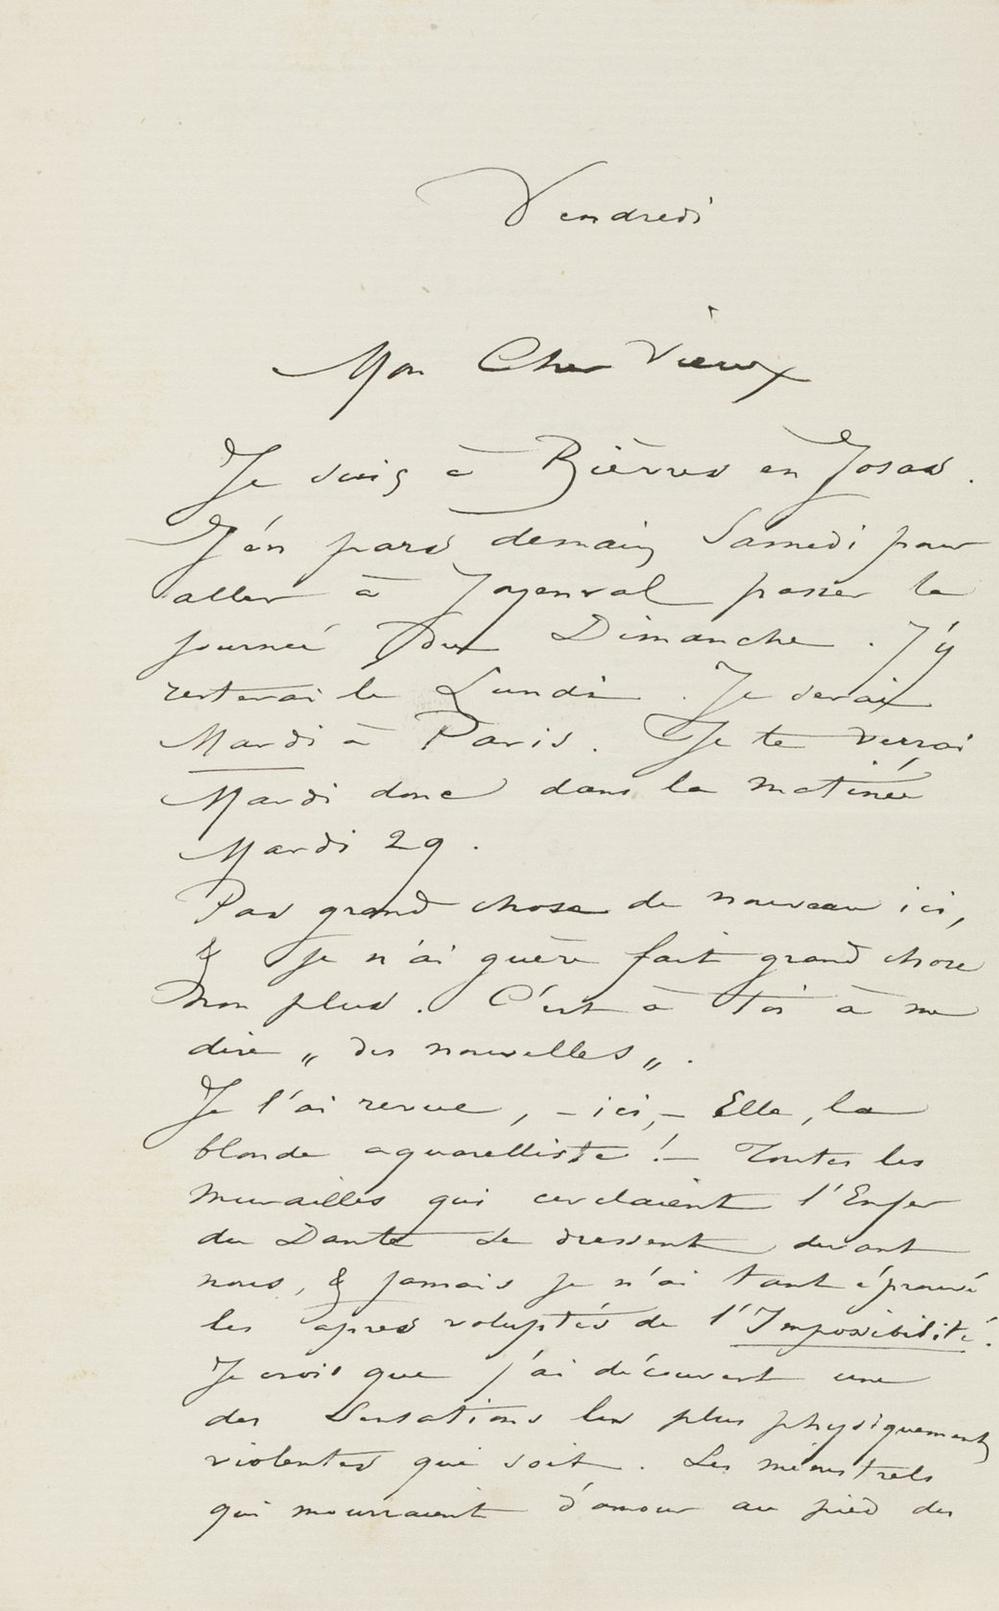 Vendredi
Mon Cher Vieux
Je suis à Bièvres en Josas.
J'en pars demain Samedi pour
aller à Joyenval passer la
journée du Dimanche. J'y
resterai le Lundi. Je serai
Mardi à Paris. Je te verrai
Mardi donc dans la matinée
Mardi 29.
Pas grand chose de nouveau ici,
& je n'ai guère fait grand chose
non plus. C'est à Toi à me
dire „ des nouvelles „.
Je l'ai revue, – ici, – Elle, la
blonde aquarelliste! – Toutes les
murailles qui cerclaient l'Enfer
du Dante se dressent devant
nous, & jamais je n'ai tant éprouvé
les apres voluptés de l'Impossibilité.
Je crois que j'ai découvert une
des Sensations les plus physiquement
violentes qui soit. Les ménestrels
qui mourraient d'amour au pied des